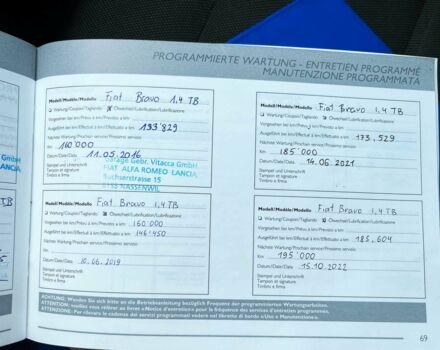 PROGRAMMIERTE WARTUNG - ENTRETIEN PROGRAMMÉ
MANUTENZIONE PROGRAMMATA
Modell/Modèle/Modello Fiat Bravo 1.4 TB
Wartung/Coupon/Tagliando Ölwechsel/Lubrification/Lubrificazione
Vorgesehen bei km/Prévu à km/Previsto a km
Ausgeführt bei km/Effectué à km/Effettuato a km 133'829
Nächste Wartung/Prochain service/Prossimo servizio
Km 160'000
Datum/Date/Data 11.05.2016
Stempel und Unterschrift
Tampon et signature
Timbro e firma
Garage Gebr. Vitacca GmbH
FIAT ALFA ROMEO LANCIA
15
8155 NASSENWIL
Modell/Modèle/Modello Fiat Bravo 1.4 TB
Wartung/Coupon/Tagliando Ölwechsel/Lubrification/Lubrificazione
Vorgesehen bei km/Prévu à km/Previsto a km 160 000
Ausgeführt bei km/Effectué à km/Effettuato a km 146'450
Nächste Wartung/Prochain service/Prossimo servizio
Km
Datum/Date/Data 10.06.2019
Stempel und Unterschrift
Tampon et signature
Timbro e firma
Modell/Modèle/Modello Fiat Bravo 1.4 TB
Wartung/Coupon/Tagliando Ölwechsel/Lubrification/Lubrificazione
Vorgesehen bei km/Prévu à km/Previsto a km
Ausgeführt bei km/Effectué à km/Effettuato a km 173,529
Nächste Wartung/Prochain service/Prossimo servizio
Km 185'000
Datum/Date/Data 14.06.2021
Stempel und Unterschrift
Tampon et signature
Timbro e firma
Modell/Modèle/Modello Fiat Bravo 1.4 TB
Wartung/Coupon/Tagliando Ölwechsel/Lubrification/Lubrificazione
Vorgesehen bei km/Prévu à km/Previsto a km
Ausgeführt bei km/Effectué à km/Effettuato a km 185,604
Nächste Wartung/Prochain service/Prossimo servizio
Km 195'000
Datum/Date/Data 15.10.2022
Stempel und Unterschrift
Tampon et signature
Timbro e firma
ACHTUNG: Wenden Sie sich bitte an die Betriebsanleitung bezüglich Frequenz der programmierten Wartungsarbeiten.
ATTENTION: veuillez vous référer au livret «Notice d'entretien» pour la fréquence des services d'entretien programmés.
ATTENZIONE: Per rilevare le cadenze dei servizi programmati vedere nel libretto di bordo «Uso e Manutenzione».
69
GmbH
LANCIA